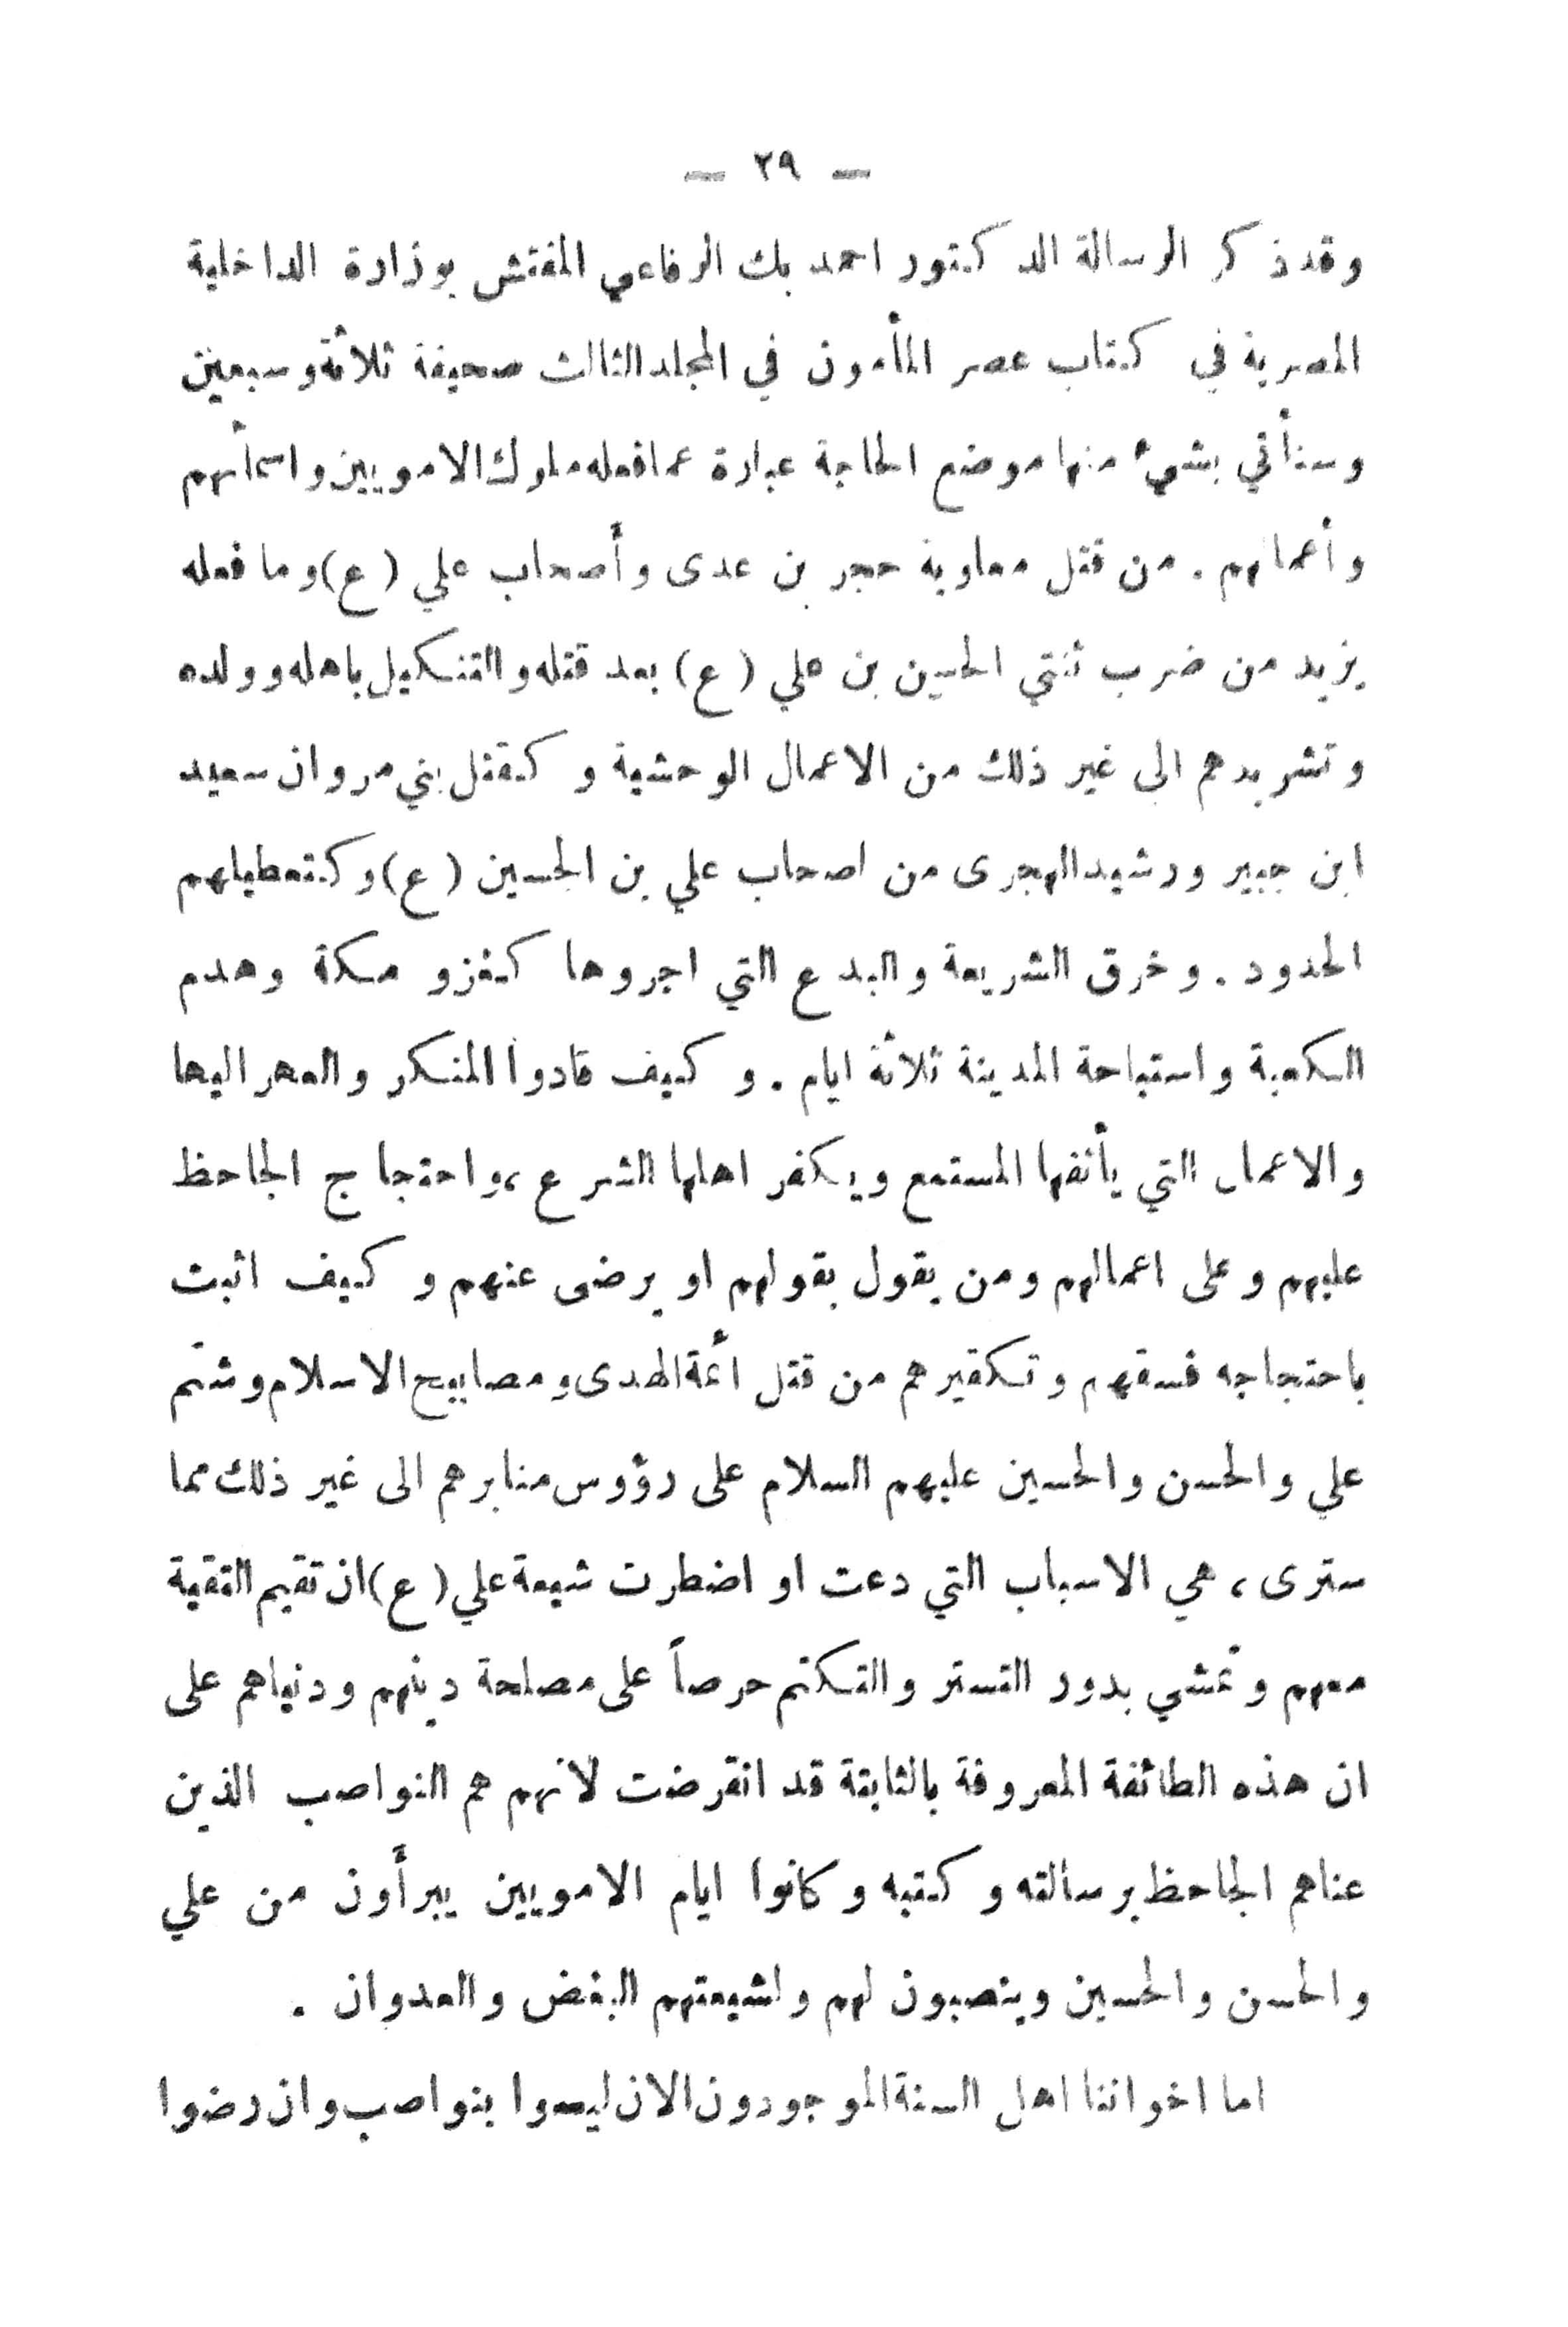 — ٢٩ —
وقد ذكر الرسالة الدكتور احمد بك الرفاعي المفتش بوزارة الداخلية
المصرية في كتاب عصر المأمون في المجلد الثالث صحيفة ثلاثة وسبعين
وسنأتي بشيء منها موضع الحاجة عبارة عما فعله ملوك الامويين واسمائهم
وأعمالهم . من قتل معاوية حجر بن عدى وأصحاب علي (ع) وما فعله
يزيد من ضرب ثنتي الحسين بن علي (ع) بعد قتله والتنكيل باهله وولده
وتشريدهم الى غير ذلك من الاعمال الوحشية وكقتل بني مروان سعيد
ابن جبير ورشيد الهجرى من اصحاب علي بن الحسين (ع) وكتعطيلهم
الحدود . وخرق الشريعة والبدع التي اجروها كغزو مكة وهدم
الكعبة واستباحة المدينة ثلاثة ايام . وكيف قادوا المنكر والعهر اليها
والاعمال التي يأنفها المستمع ويكفر اهلها الشرع ، واحتجاج الجاحظ
عليهم وعلى اعمالهم ومن يقول بقولهم او يرضى عنهم وكيف اثبت
باحتجاجه فسقهم وتكفيرهم من قتل أئمة الهدى ومصابيح الاسلام وشتم
علي والحسن والحسين عليهم السلام على رؤوس منابرهم الى غير ذلك مما
سترى ، هي الاسباب التي دعت او اضطرت شيعة علي (ع) ان تقيم التقية
معهم وتمشي بدور التستر والتكتم حرصاً على مصلحة دينهم ودنياهم على
ان هذه الطائفة المعروفة بالثابتة قد انقرضت لانهم هم النواصب الذين
عناهم الجاحظ برسالته وكتبه وكانوا ايام الامويين يبرأون من علي
والحسن والحسين وينصبون لهم ولشيعتهم البغض والعدوان .
اما اخواننا اهل السنة الموجودون الان ليسوا بنواصب وان رضوا